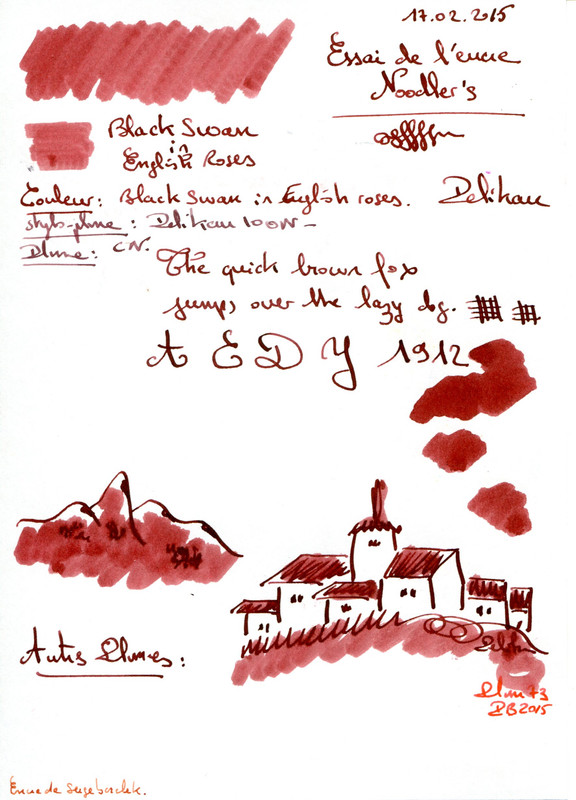 17.02.2015
Essai de l'encre
Noodler's
Black Swan
in
English Roses
Couleur: Black Swan in English roses. Pelikan
stylo-plume : Pelikan 100N -
Plume: CN.
The quick brown fox
jumps over the lazy dog.
A E D Y 1912
Pelikan
Autres Plumes :
Plum 73
PB2015
Encre de